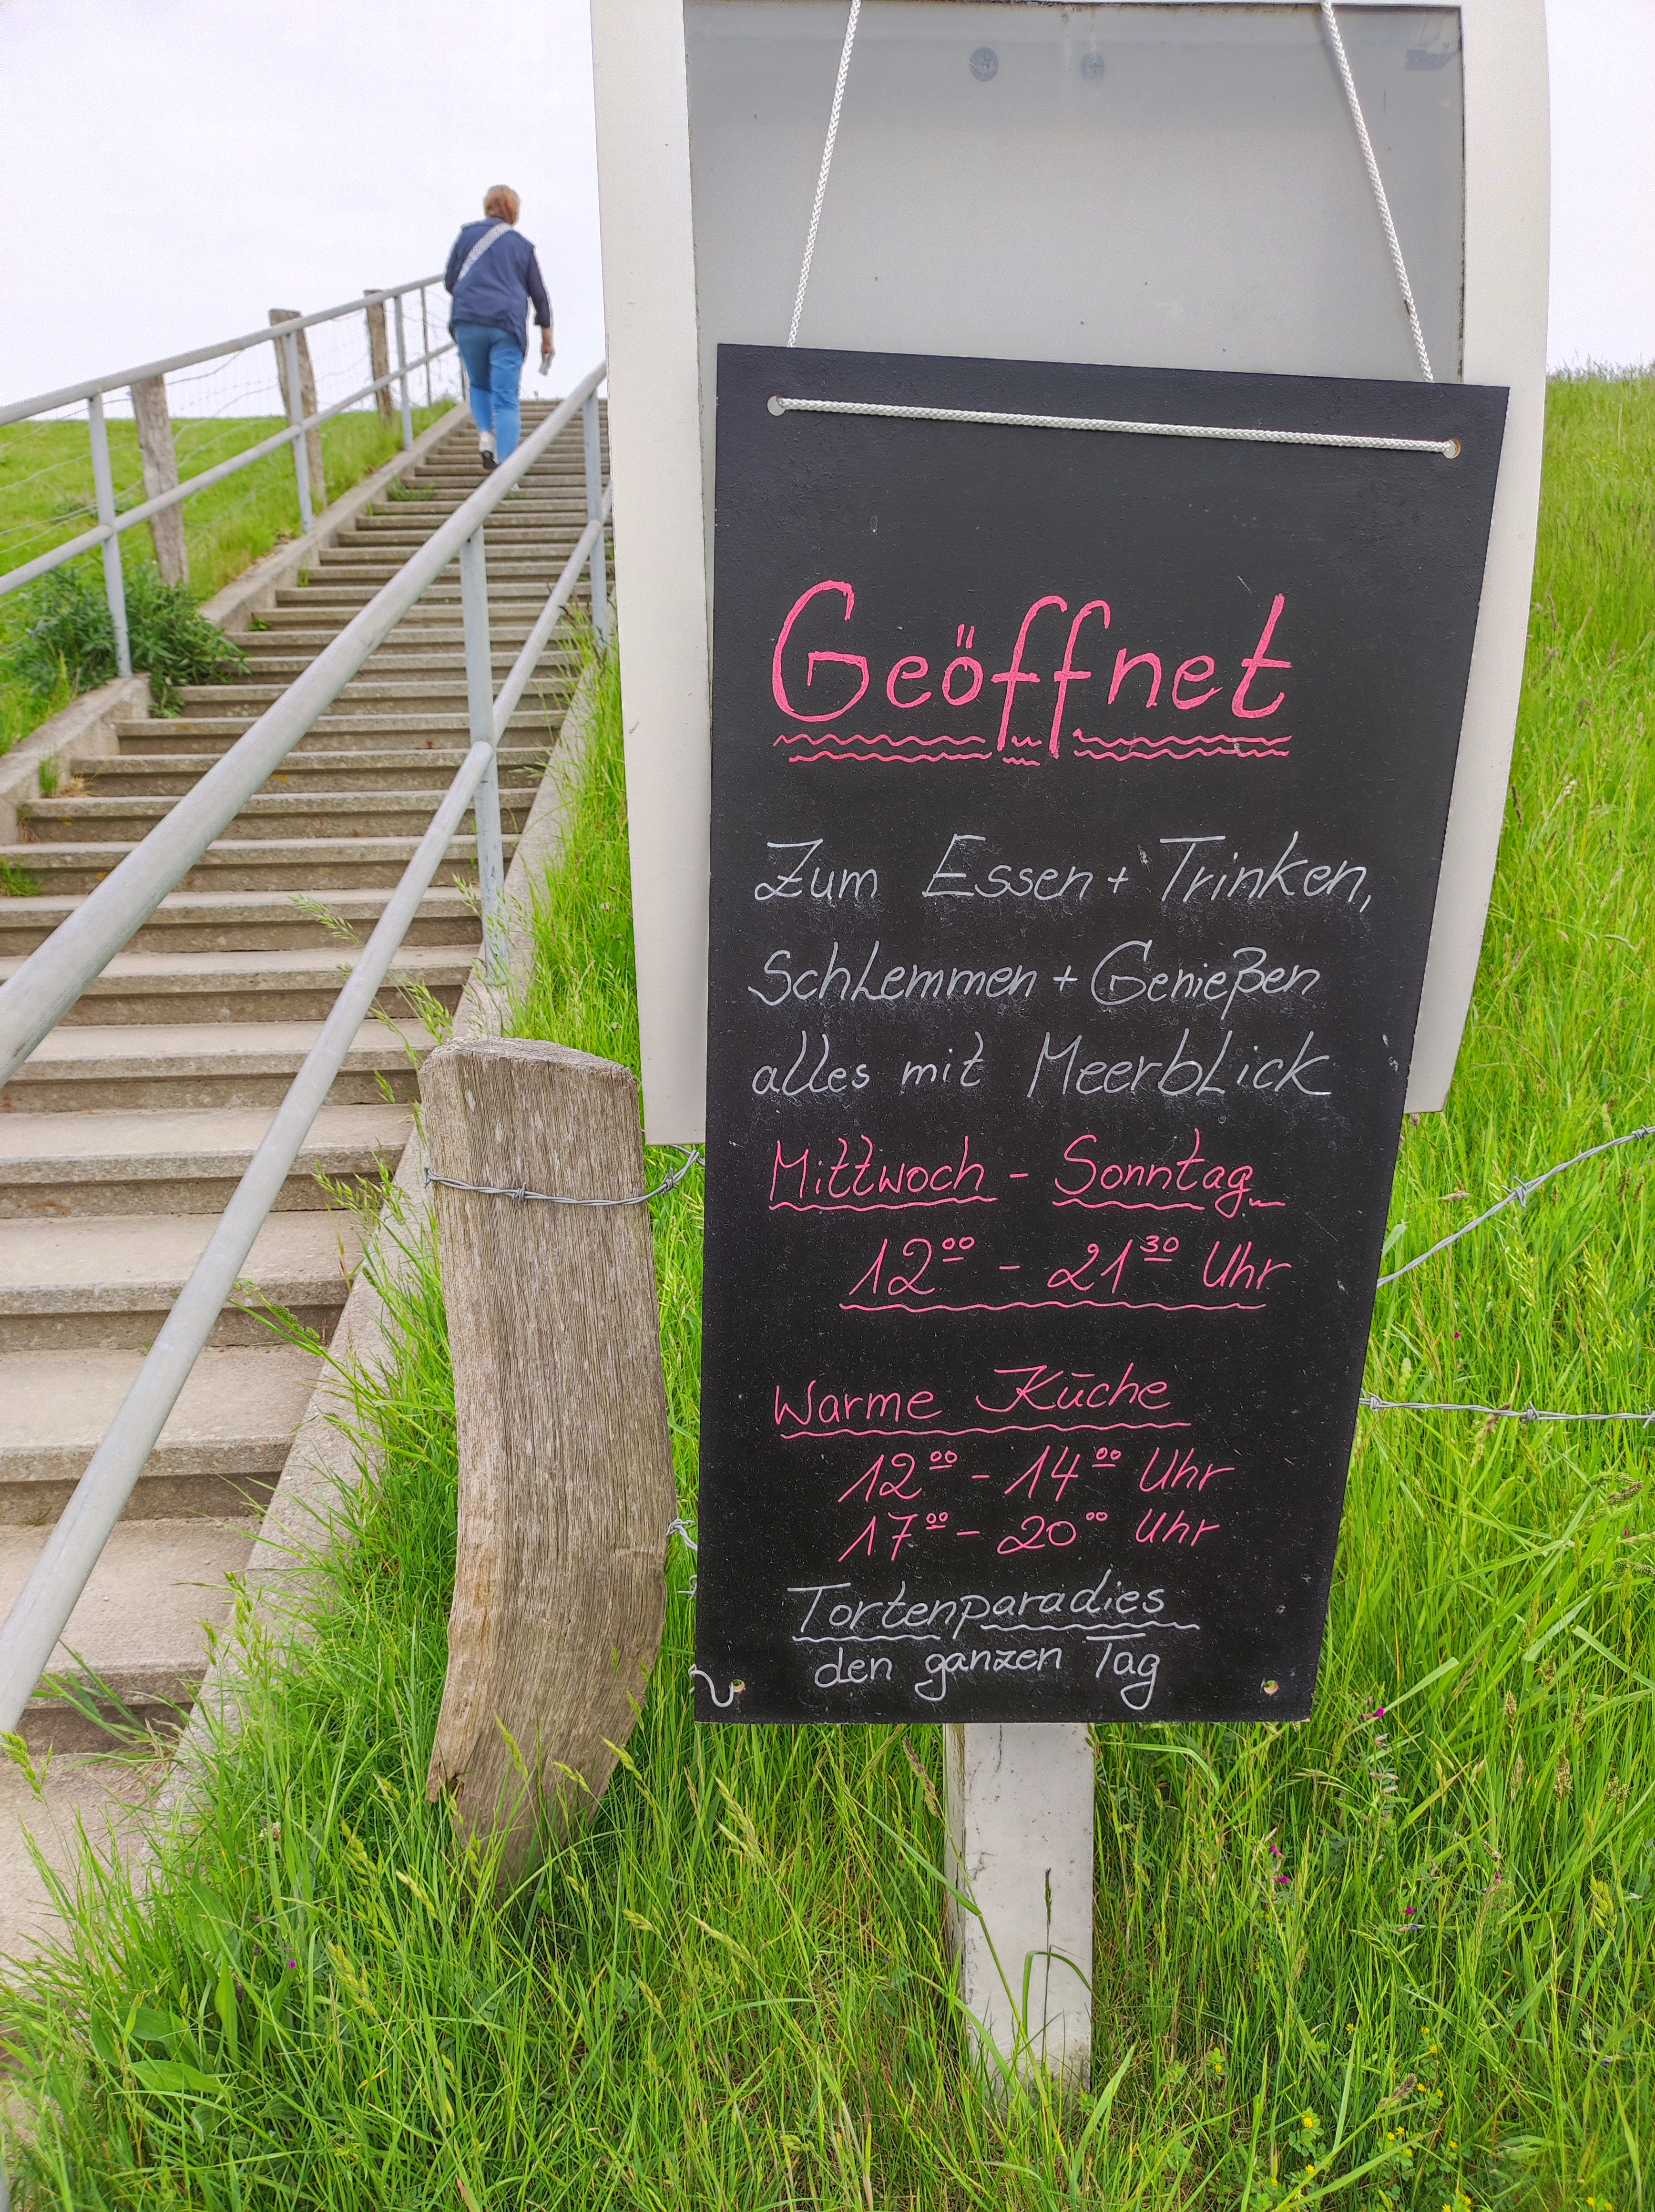 Geöffnet
Zum Essen + Trinken,
Schlemmen + Genießen
alles mit Meerblick
Mittwoch - Sonntag
12⁰⁰ - 21³⁰ Uhr
Warme Küche
12⁰⁰ - 14⁰⁰ Uhr
17⁰⁰ - 20⁰⁰ Uhr
Tortenparadies
den ganzen Tag